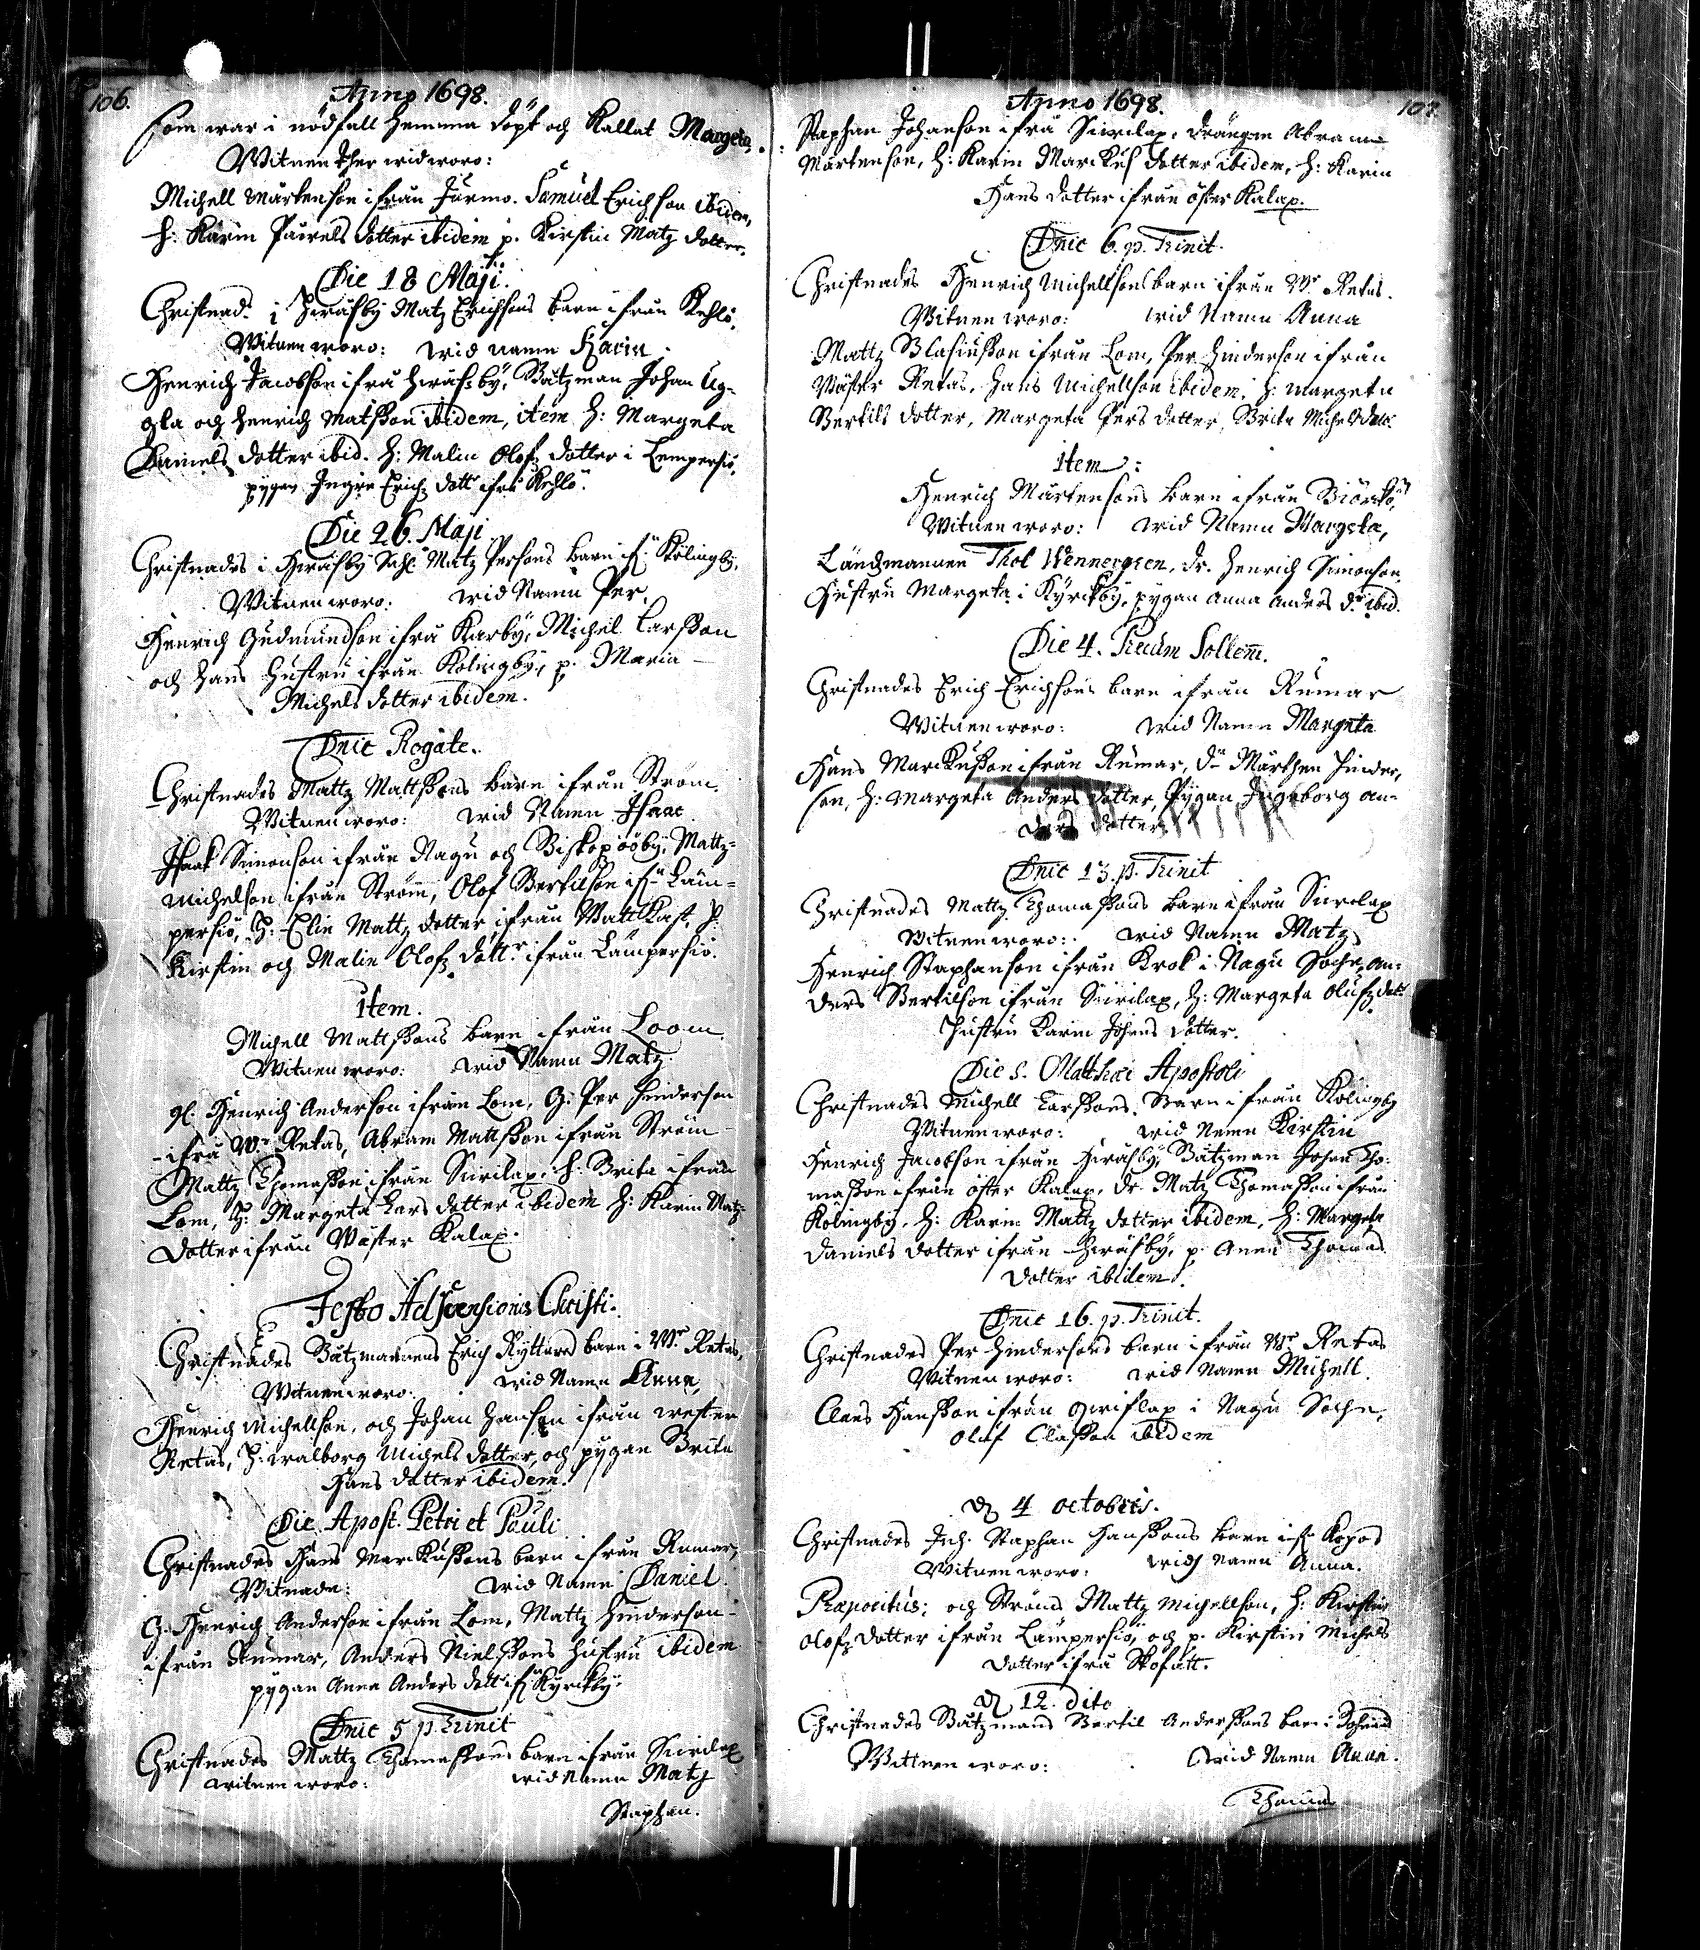 106.
Anno 1698.
som war i nödfall hemma döpt och kallat Margeta,
Witnen ther wid woro:
Michell Mårtenson ifrån Jurmo. Samuel Erichson ibidem,
h: Karin Pauels dotter ibidem p. Kirstin Matz dotter.
Die 18 Maji:
Christnad. i Hwäfsby Matz Erichsons barn ifrån Kehlö,
Witnen woro: wid namn Karin.
Henrich Jacobson ifrå Hwäfsby, Båtzman Johan Ug-
gla och Henrich Matsson ibidem, item h: Margeta
Daniels dotter ibid. h: Malin Olofz dotter i Lempersiö,
pygan Ingrin Erichz dott ifrå Kehlö.
Die 26. Maji
Christnades i Hwäfsby Sahl. Matz Persons barn if: Kölingby,
Witnen woro: wid Namn Per,
Henrich Gudmundson ifrå Karby, Michel Larsson
och hans hustru ifrån Kölingby, p. Maria
Michels dotter ibidem.
Dnic Rogate.
Christnades Mattz Mattssons barn ifrån Ström,
Witnen woro: wid Namn Isaac
Isaak Simonson ifrån Nagu och Biskopsöby, Mattz
Michelson ifrån Ström, Olof Bertilson if: Läm-
persiö, h: Elin Mattz dotter ifrån Wattkast, h:
Kirstin och Malin Olofz dottr ifrån Lämpersiö.
Item.
Michell Mattssons barn ifrån Loom
Witnen woro: wid Namn Matz
gl. Henrich Anderson ifrån Lom, G: Per Hinderson
ifrå Wr Retas, Abram Mattsson ifrån Ström
Mattz Thomasson ifrån Siwilax. h: Brita ifrån
Lom, h: Margeta Lars dotter ibidem h: Karin Matz
dotter ifrån Wäster Kalax.
Festo Adscensionis Christi.
Christnades Båtzmannens Erich Ryttars barn i Wr Retas,
Witnen woro: wid Namn Anna,
Henrich Michellson, och Johan Hanson ifrån wester
Retas, h: walborg Michels dotter, och pygan Brita
Hans dotter ibidem.
Die Apost. Petri et Pauli
Christnades Hans Marckussons barn ifrån Rumar,
Witnade: wid Namn Daniel.
G. Henrich Anderson ifrån Lom, Mattz Hinderson
ifrån Rumar, Anders Nielssons hustru ibidem
pygan Anna Anders dott if: Kyrckby.
Dnic 5 p. Trinit
Christnades Mattz Thomassons barn ifrån Siwilax
witnen woro: wid Namn Matz
Staphan.
107.
Anno 1698.
Staphan Johanson ifrå Siwilax, drängen Abram
Mårtenson, h: Karin Marckus dotter ibidem, h: Karin
Hans dotter ifrån öster Kalax.
Dnic 6. p. Trinit.
Christnades Henrich Michellsons barn ifrån Wr Retas.
Witnen woro: wid Namn Anna
Mattz Blasiusson ifrån Lom, Per Hinderson ifrån
Wäster Retas, Hans Michellson ibidem, h: Margeta
Bertils dotter, Margeta Pers dotter, Brita Michels dott.
Item:
Henrich Mårtensons barn ifrån Biörkö,
Witnen woro: wid Namn Margeta,
Ländzmannen Thol Wennergren, dr. Henrich Simonson,
Hustru Margeta i Kyrckby, pygan Anna Anders dr ibid.
Die 4. Precum Sollem.
Christnades Erich Erichsons barn ifrån Rumar
Witnen woro: wid Namn Margeta
Hans Marckusson ifrån Rumar, dr Mårthen Hinder,
son, h: Margeta Anders dotter, Pygan Ingeborg An-
ders dotter
Dnic 13. p. Trinit
Christnades Mattz Thomassons barn ifrån Siwilax
Witnen woro: wid Namn Matz
Henrich Staphanson ifrån Krok i Nagu Sochn, An-
ders Bertilson ifrån Siwilax, h: Margeta Olufz dott
Hustru Karin Johans dotter.
Die S. Matthæi Apostoli
Christnades Michell Larssons barn ifrån Kölingby
Witnen woro: wid Namn Kirstin
Henrich Jacobson ifrån Hwäfsby, Båtzman Johan Tho-
masson ifrån öster Kalax, dr. Matz Thomasson ifrån
Kölingby, h: Karin Mattz dotter ibidem, h: Margeta
Daniels dotter ifrån Hwäfsby, p. Anna Thomas
dotter ibidem.
Dnic 16. p. Trinit.
Christnades Per Hindersons barn ifrån Wr Retas
Witnen woro: wid Namn Michell.
Claes Hansson ifrån Gwislax i Nagu Sochn,
Oluf Classon ibidem
D 4 octobris.
Christnades Sch. Staphan Hanssons barn if: Kopos
Witnen woro: wid Namn Anna.
Præpositus; och Ströms Mattz Michellson, h: Kirstin
Olofz dotter ifrån Lämpersiö, och p. Kirstin Michels
dotter ifrå Skofatt.
D 12. dito
Christnades Båtzmans Bertil Anderssons barn i
Wittnen woro: wid Namn Anna.
Thomas